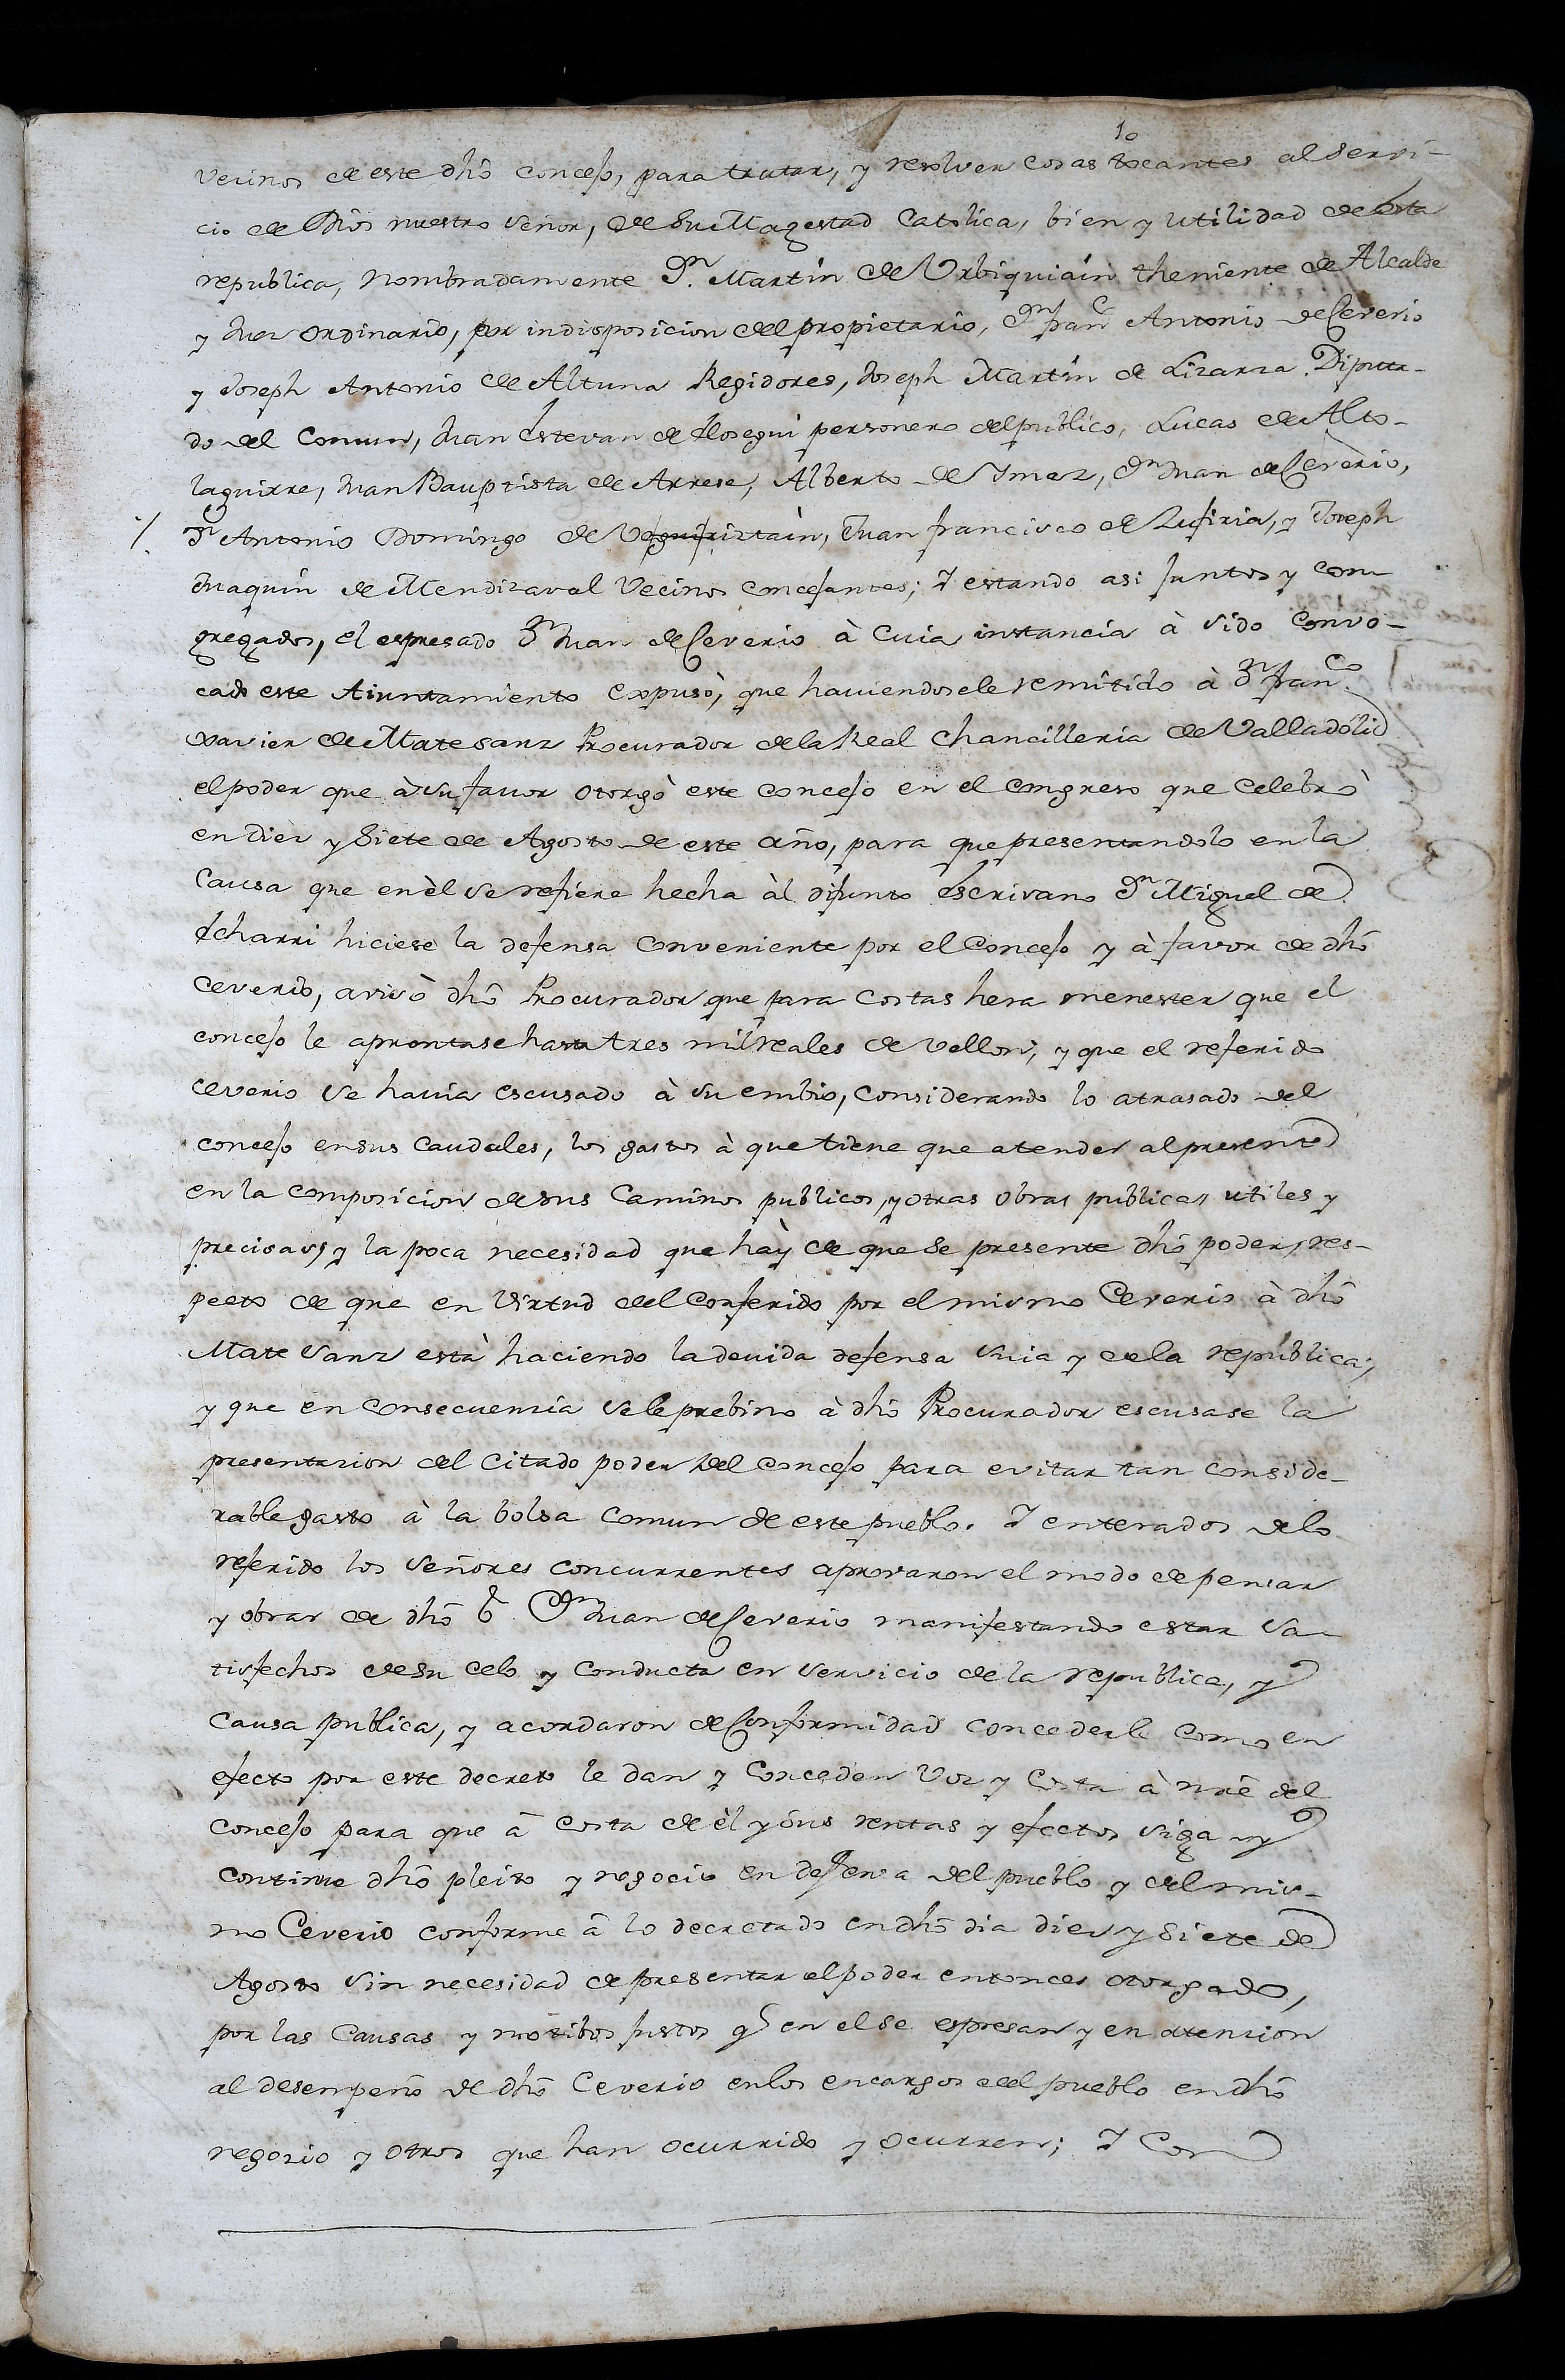 10
vecinos de este dhô concejo, para tratar, y resolver cosas tocantes al servi-
cio de Dios nuestro señor, de su Magestad Catolica, bien y utilidad de esta
republica, nombradamente Dn. Martin de Urbiquiain theniente de Alcalde
y Juez ordinario, por indisposicion del propietario, Dn franco Antonio de Ceverio
y Joseph Antonio de Altuna Regidores, Joseph Martin de Lizarza Diputa-
do del Comun, Juan Estevan de Elosegui personero del publico, Lucas de Alto-
laguirre, Juan Bauptista de Arrese, Alberto de Ymaz, Dn Juan de Ceverio,
Dn Antonio Domingo de, Juan francisco de Zufiria, y Joseph
Juaquin de Mendizaval Vecinos concejantes; Y estando asi juntos y con-
gregados, el espresado Dn Juan de Ceverio à cuia instancia à sido convo-
cado este Aiuntamiento expusò, que haviendosele remitido à Dn franco
xavier de Mate sanz Procurador de la Real Chancilleria de Valladolid
el poder que à su favor otorgò este concejo en el congreso que celebrò
en diez y siete de Agosto de este año, para que presentandolo en la
Causa que en èl se refiere hecha àl difunto Escrivano Dn Miguel de
Echarri hiciese la defensa conveniente por el Concejo y à favor de dhô
Ceverio, avisò dhô Procurador que para costas hera menester que el
concejo le aprontase hasta tres mil reales de vellon; y que el referido
ceverio se havia escusado à su embio, considerando lo atrasado del
concejo en sus caudales, los gastos à que tiene que atender al presente
en la composicion de sus Caminos publicos, y otras obras publicas utiles y
precisas, y la poca necesidad que hày de que se presente dhô poder, res-
pecto de que en virtud del conferido por el mismo Ceverio à dhô
Mate sanz està haciendo la devida defensa suia y de la república;
y que en consecuencia se le prebino à dhô Procurador escusase la
presentazion del citado poder del Concejo para evitar tan conside-
rable gasto à la bolsa comun de este pueblo. Y enterados de lo
referido los señores concurrentes aprovaron el modo de pensar
y obrar de dhô Dn Juan de Ceverio manifestando estar sa-
tisfechos de su celo y conducta en servicio de la republica, y
causa publica, y acordaron de conformidad concederle como en
efecto por este decreto le dan y conceden voz y costa à nre del
concejo para que â costa de èl y sus rentas y efectos siga y
continue dhô pleito y negocio en defensa del pueblo y del mis-
mo Ceverio conforme â lo decretado en dhô dia diez y siete de
Agosto sin necesidad de presentar el poder entonces otorgado,
por las causas y motibos justos q̃ en el se espresan y en atencion
al desempeño de dhô Ceverio en los encargos del pueblo en dhô
negozio y otros que han ocurrido y ocurren; Y Con